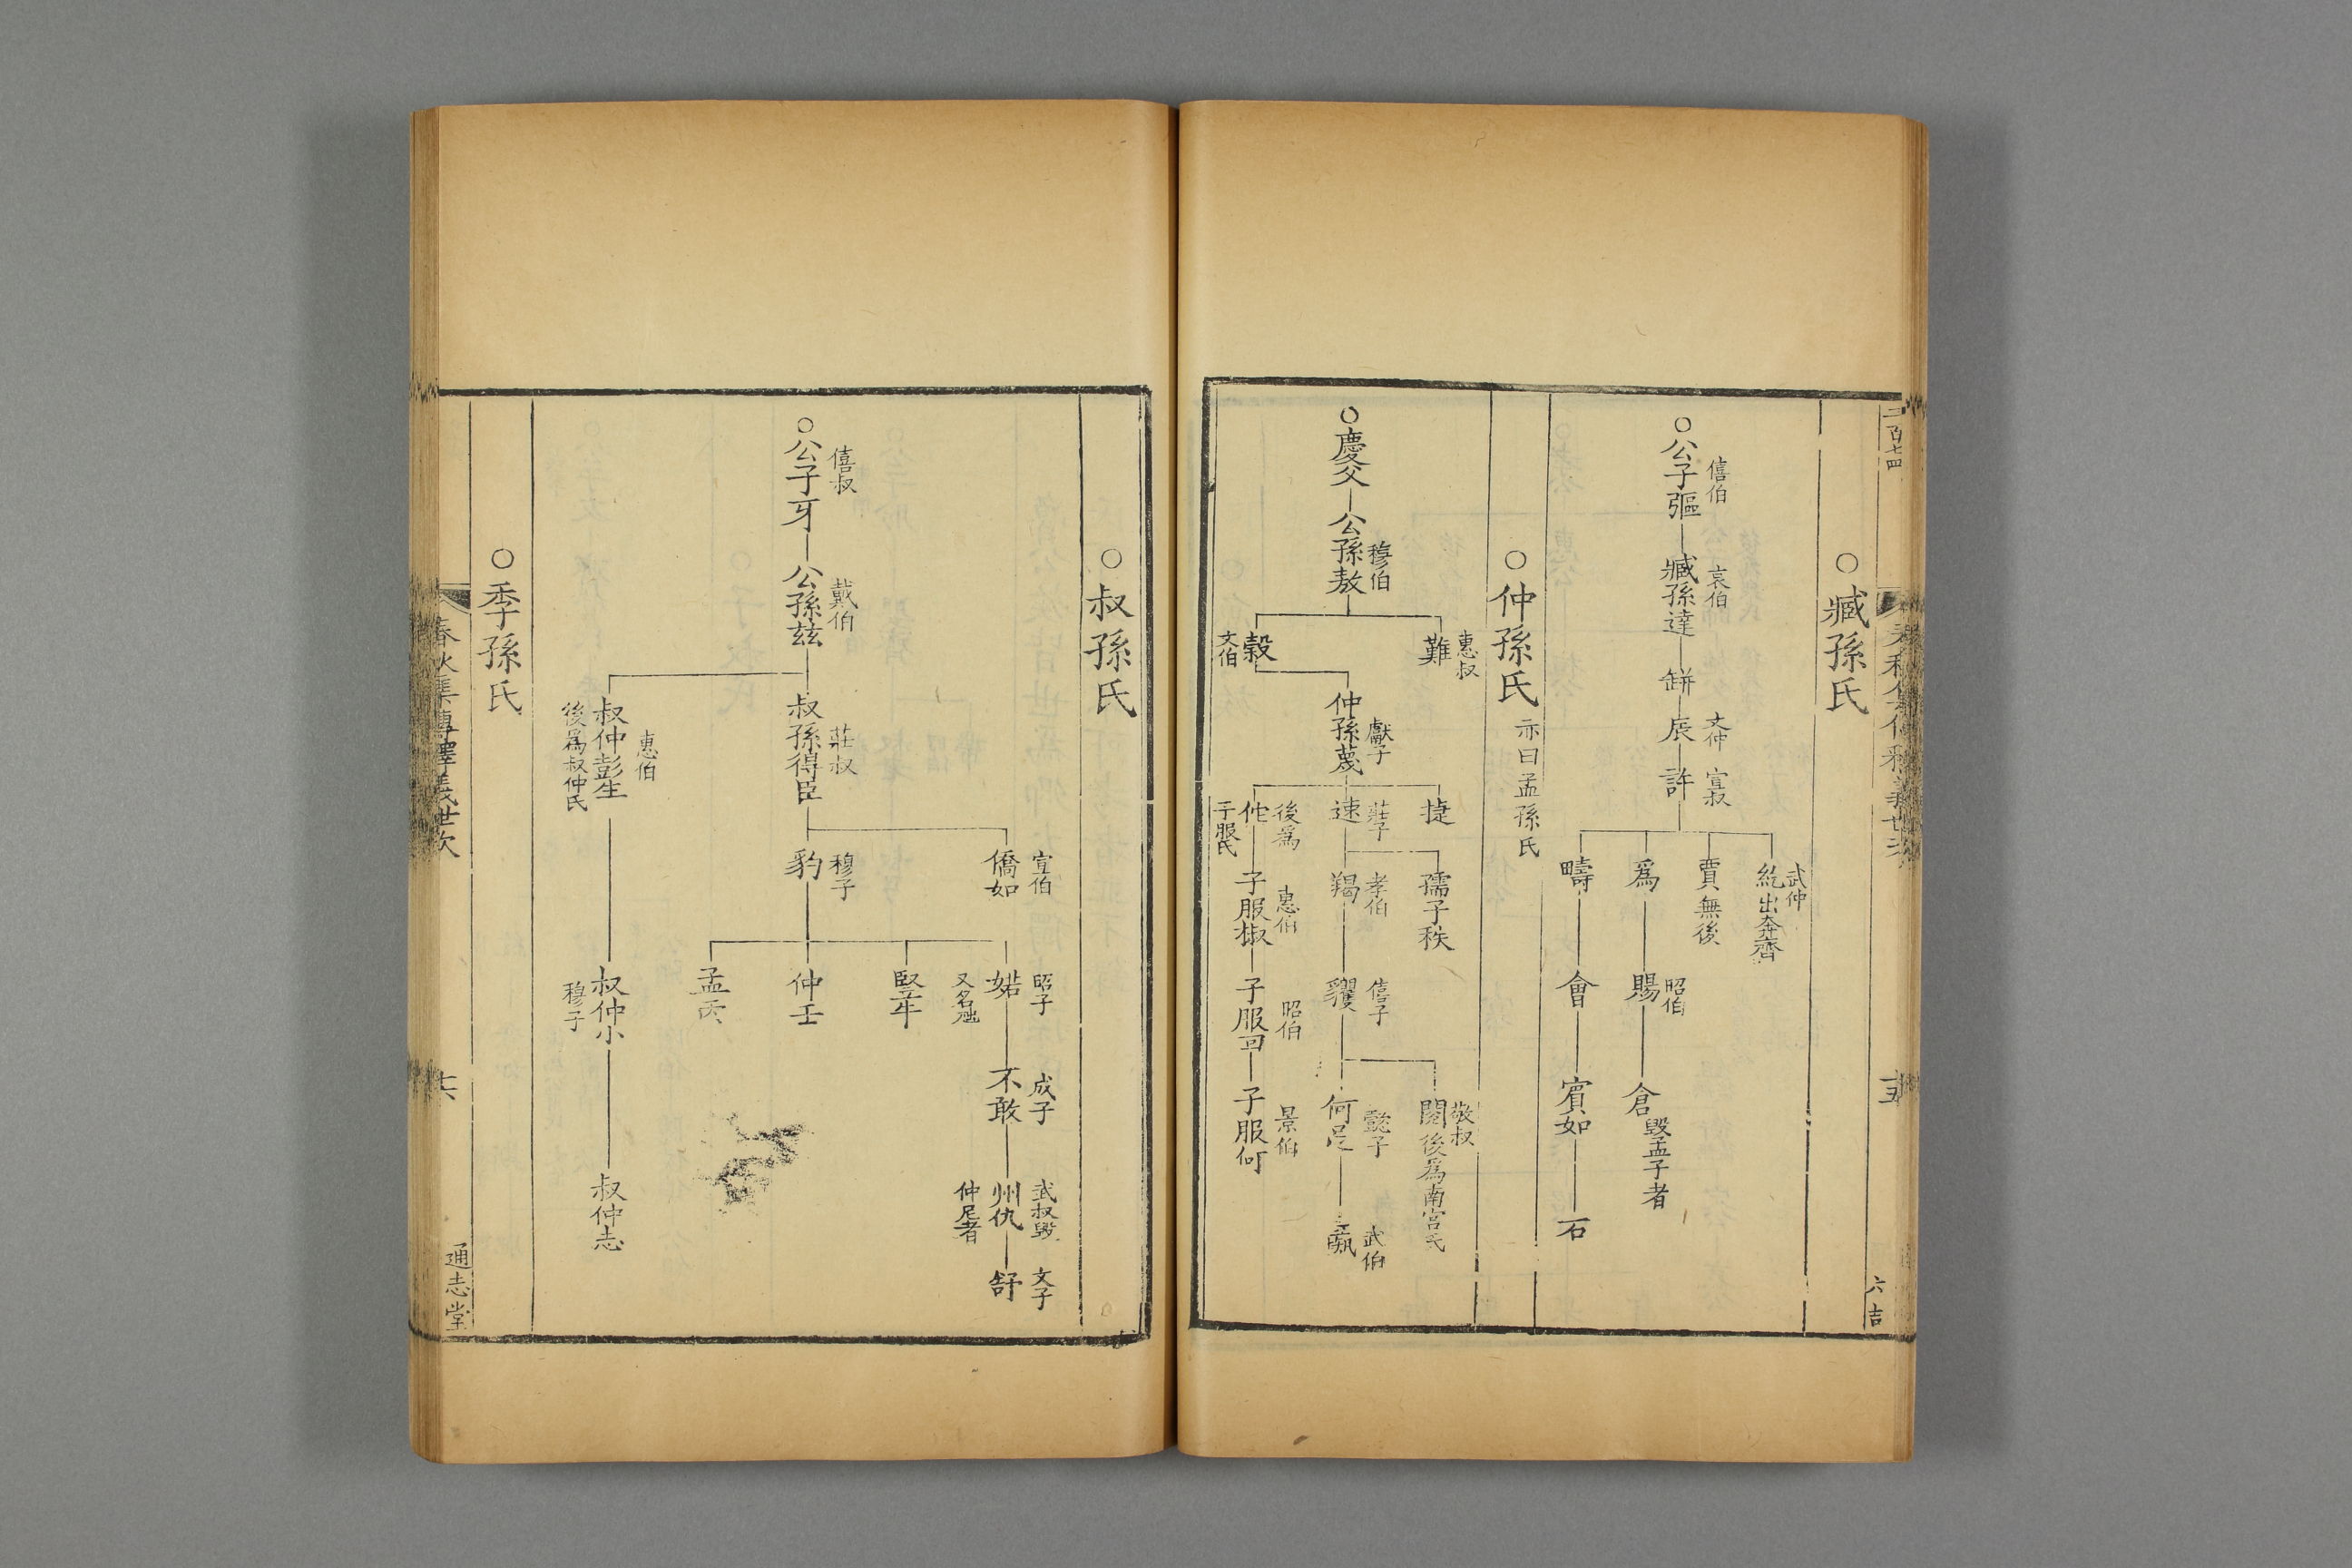 二百七四
六吉
○臧孫氏
○公子彄 僖伯
臧孫達 哀伯
缾
辰 文仲
許 宣叔
紇出奔齊 武仲
賈無後
爲
賜 昭伯
倉毀孟子者
疇
會
賓如
石
○仲孫氏亦曰孟孫氏
○慶父
公孫敖 穆伯
難 惠叔
穀 文伯
仲孫蔑 獻子
捷
速 莊子
佗 後爲子服氏
孺子秩
羯 孝伯
子服椒 惠伯
貜 僖子
子服回 昭伯
閱後爲南宮氏 敬叔
何忌 懿子
子服何 景伯
彘 武伯
○叔孫氏
○公子牙 僖叔
公孫茲 戴伯
叔孫得臣 莊叔
叔仲彭生 惠伯
後爲叔仲氏
僑如 宣伯
豹 穆子
婼 昭子
又名
豎牛
仲壬
孟丙
不敢 成子
州仇 武叔毀仲尼者
舒 文子
叔仲小 穆子
叔仲志
○季孫氏
春秋集傳釋義世次
十六
通志堂